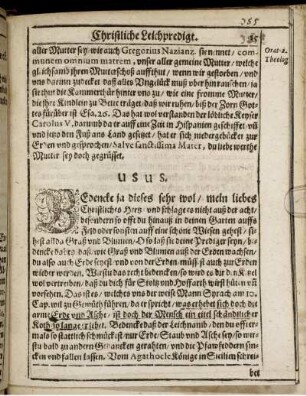 365
Christliche Leichpredigt.
aller Mutter sey/ wir auch Gregorius Nazianz. sie nennet/ com-
munem omnium matrem, unser aller gemeine Mutter/ welche
gleichsam ihrem Mutterschoß auffthut/ wenn wir gestorben/ und
uns darinn zudecket/ daß alles Unglück muß vorhinrauschen/ ja
sie thut die Kammerthür hinter uns zu/ wie eine fromme Mutter/
die ihre Kindlein zu Bette träget/ daß wir ruhen/ biß der Zorn Got-
tes fürüber ist Esa. 26. Das hat wol verstanden der löbliche Keyser
Carolus V. da er auff eine Zeit in Hispanien geschiffet/ und
und jetzo den Fuß ans Land gesetzet/ hat er sich nieder gebücket zur
Erden und gesprochen/ Salve sanctissima Mater, du liebe werthe
Mutter sey doch gegrüsset.
Orat. 2.
Theolog.
USUS.
Bedencke ja dieses sehr wol/ mein liebes
Christliches Hertz/ und schlage es nicht aus der acht/
besondern so offt du hinauß in deinen Garten auffs
Feld oder sonsten auff eine schöne Wiesen gehest/ sie-
hest allda Graß und Blumen/ so laß sie deine Prediger seyn/ be-
dencke dabey/ daß wie Graß und Blumen auß der Erden wachsen/
also du auch Erde seyst und von der Erden/ must auch zur Erden
wieder werden. Wirstu das recht bedencken/ so wird es dir den Kutzel
wol vertreiben/ daß du dich für Stoltz und Hoffarth wirst hüten und
vorsehen. Das ist es/ welches uns der weise Mann Syrach am 10.
Cap. wil zu Gemüth führen/ da er spricht/ was erhebet sich doch die
arme Erde und Asche/ ist doch der Mensch ein eitel schändlicher
Koth so lange er lebet. Bedencke daß der Leichnamb/ den du offter-
mals so stattlich schmückest/ nur Erde/ Staub und Asche sey/ so wer-
stu bald zu andern Gedancken gerahten/ und die Pfawfedern sin-
cken und fallen lassen. Vom Agathocle Könige in Sicilien schrei-
bet